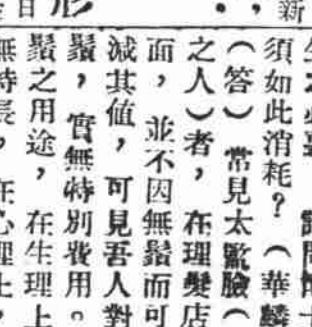 新
形
日
須如此消耗？（華麟
（答）常見太監臉（
之人）者，在理髮店
面，並不因無鬚而可
減其值，可見吾人對
鬚，實無特別費用。
鬚之用途，在生理上
無特長，在心理上，